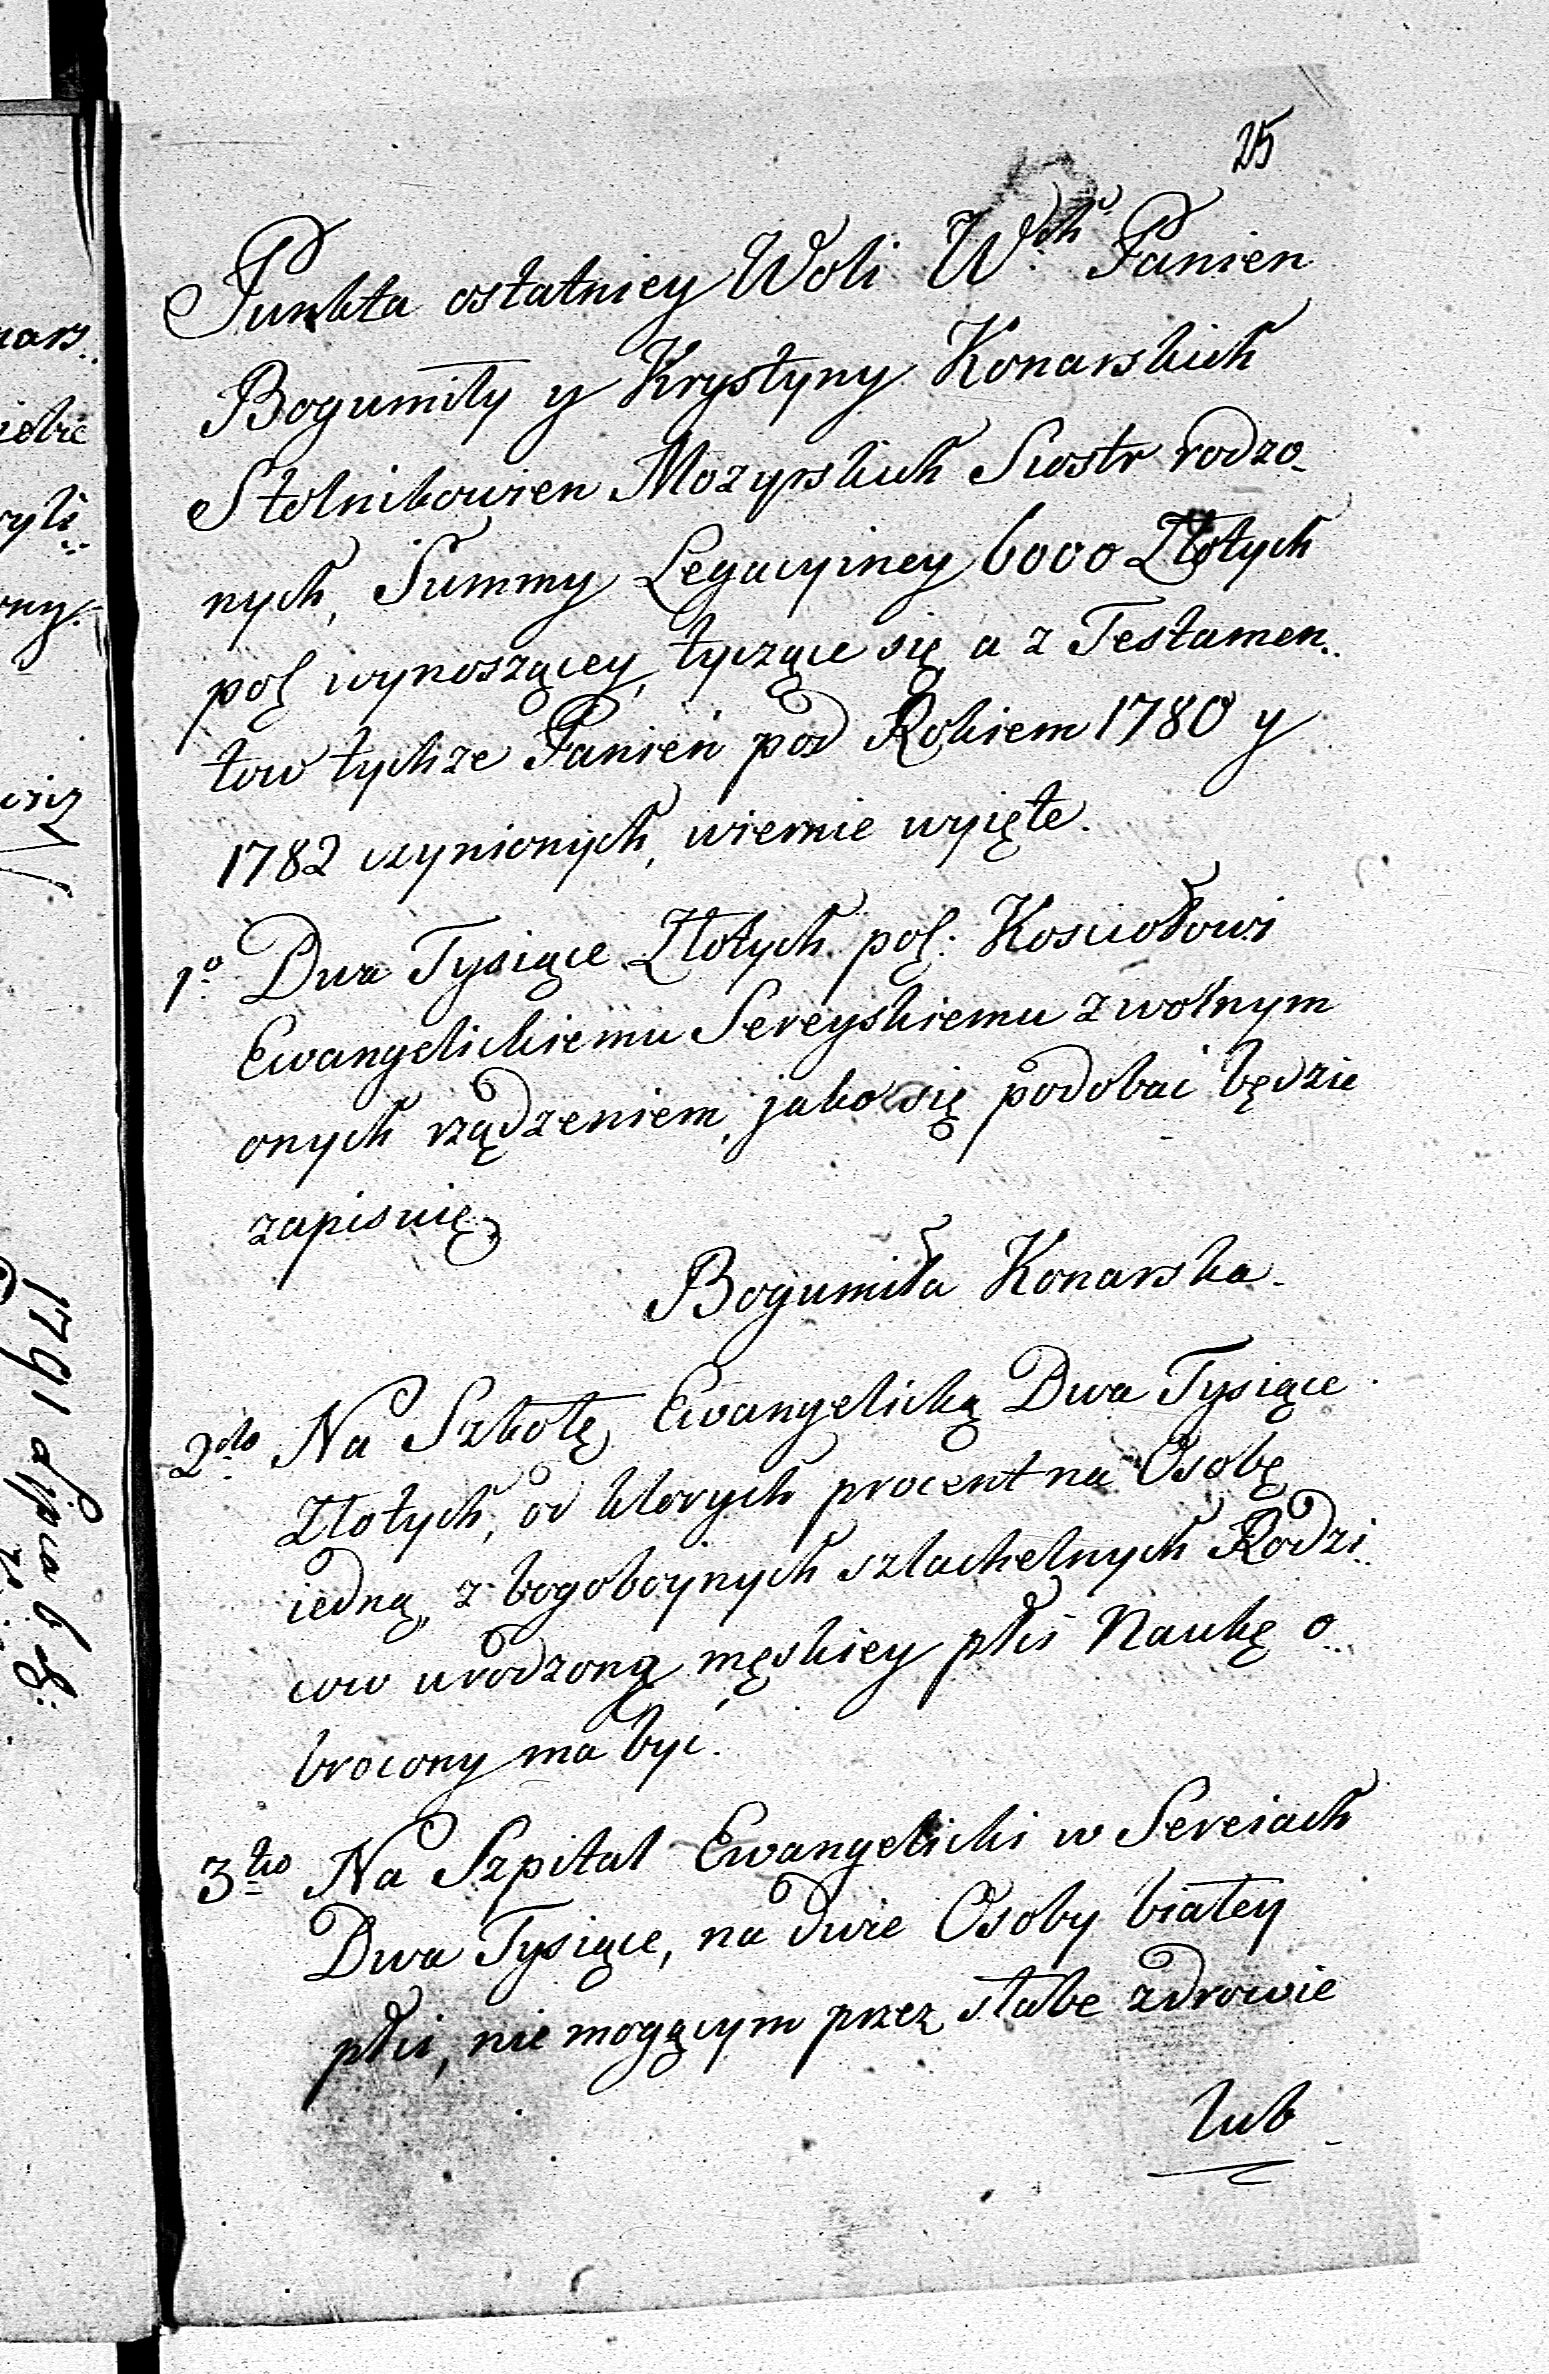 25
Punkta ostatniey Woli W.ch Panien
Bogumiły y Krystyny Konarskich
Stolnikowien Mozyrskich Siostr rodzo-
nych, Summy Legacyiney 6000 Złotych
pol wynoszącey, tyczące się a z Testamen..
tow tychże Panien pod Rokiem 1780 y
1782 czynionych, wiernie wyięte.
1o Dwa Tysiące Złotych pol: Kosciołowi
Ewangelickiemu Sereyskiemu z wolnym
onych rządzeniem, jako się podobać będzie
zapisuię
Bogumiła Konarska.
2do Na Szkołę Ewangelicką Dwa Tysiące
Złotych, od ktorych procent na Osobę
iedną, z bogoboynych szlachetnych Rodzi..
cow urodzoną męskiey płci Naukę o..
brocony ma być.
3tio Na Szpital Ewangelicki w Sereiach
Dwa Tysiące, na dwie Osoby białey
płci, nie mogącym przez słabe zdrowie
lub
1791 Lipca 6 d: